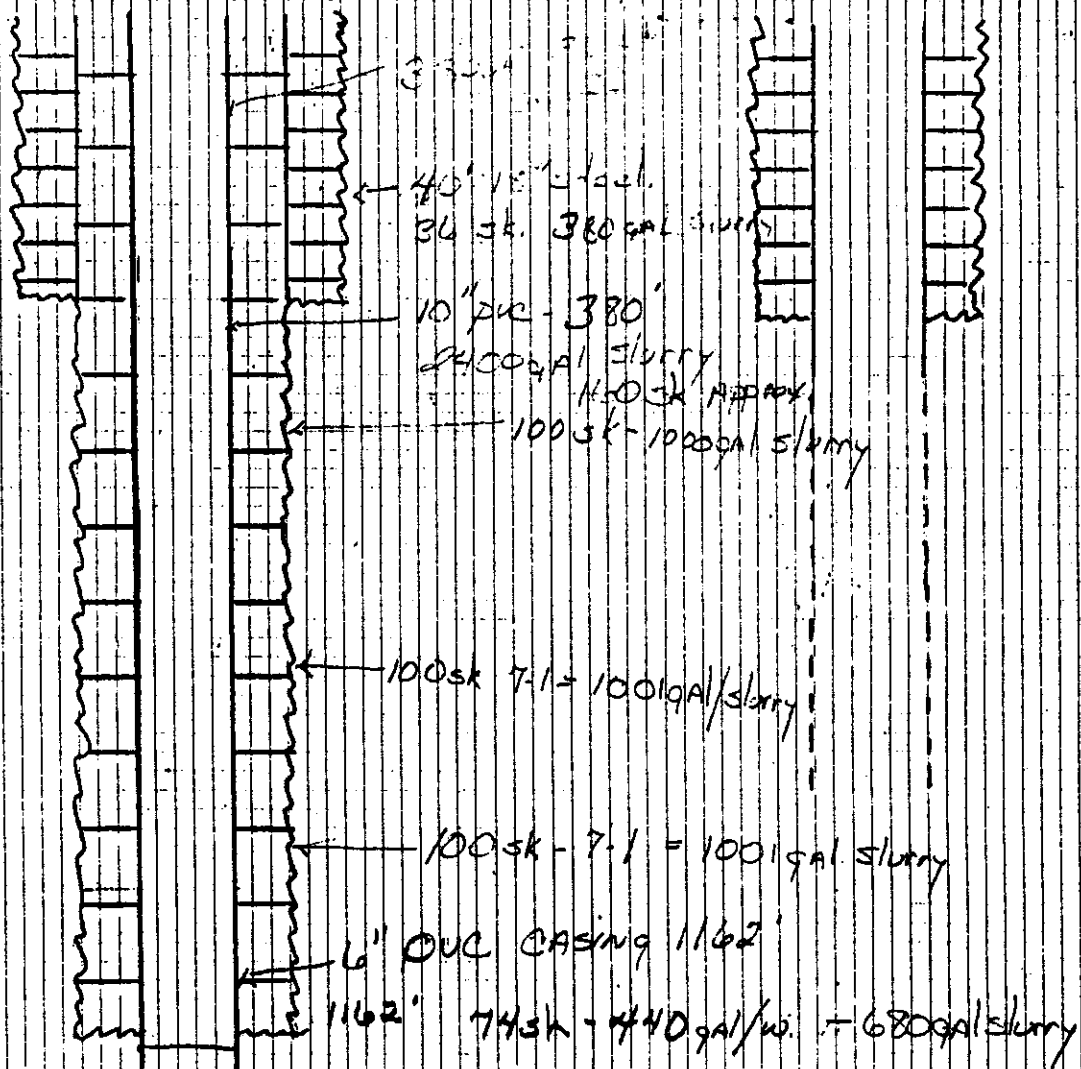 40'
36 sk. 380 gAL slurry
10" pvc - 380'
2400 gAl Slurry
sk Approx.
100 sk - 1000 gAl slurry
100 sk 7-1 = 1001 gAl/slurry
100 sk - 7-1 = 1001 gAl slurry
6" PVC CASINg 1162'
1162' 74 sk - 440 gAl/w. - 680 gAl slurry